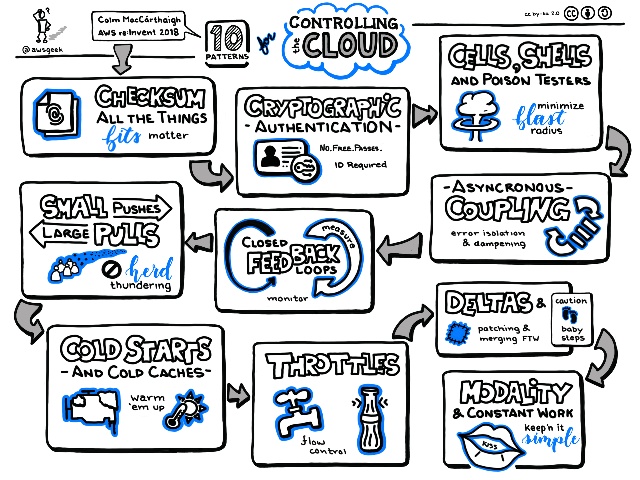 @awsgeek
Colm MacCárthaigh
AWS re:Invent 2018
10
PATTERNS
for
CONTROLLING
the CLOUD
cc by-sa 2.0
CHECKSUM
ALL THE THINGS
bits matter
CRYPTOGRAPHIC
- AUTHENTICATION -
NO. FREE. PASSES.
ID Required
CELLS, SHELLS
AND POISON TESTERS
minimize
blast
radius
- ASYNCRONOUS -
COUPLING
error isolation
& dampening
CLOSED
FEEDBACK
LOOPS
measure
monitor
SMALL PUSHES
LARGE PULLS
herd
thundering
COLD STARTS
- AND COLD CACHES -
warm
'em up
THROTTLES
flow
control
DELTAS &
patching &
merging FTW
caution
baby
steps
MODALITY
& CONSTANT WORK
KISS
keep'n it
simple